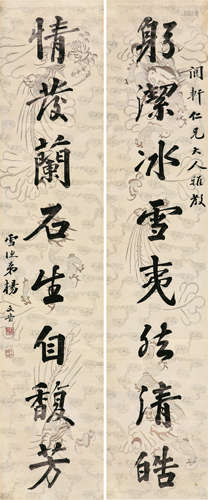 潤軒仁兄大人雅教
躬潔冰雪夷然清皓
情發蘭石生自馥芳
雪漁弟楊文瑩